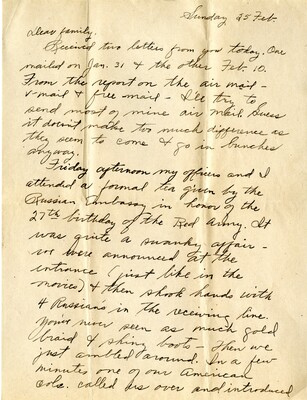 Sunday 25 Feb
Dear family,
Received two letters from you today. One
mailed on Jan. 31 & the other Feb. 10.
From the report on the air mail -
v-mail & free mail - I'll try to
send most of mine air mail. Guess
it doesn't make too much difference as
they seem to come & go in bunches
anyway.
Friday afternoon my officers and I
attended a formal tea given by the
Russian Embassy in honor of the
27th birthday of the Red Army. It
was quite a swanky affair -
we were announced at the
entrance (just like in the
movies) & then shook hands with
4 Russians in the receiving line.
You've never seen as much gold
braid & shiny boots - Then we
just ambled around. In a few
minutes one of our American
Cols. called us over and introduced